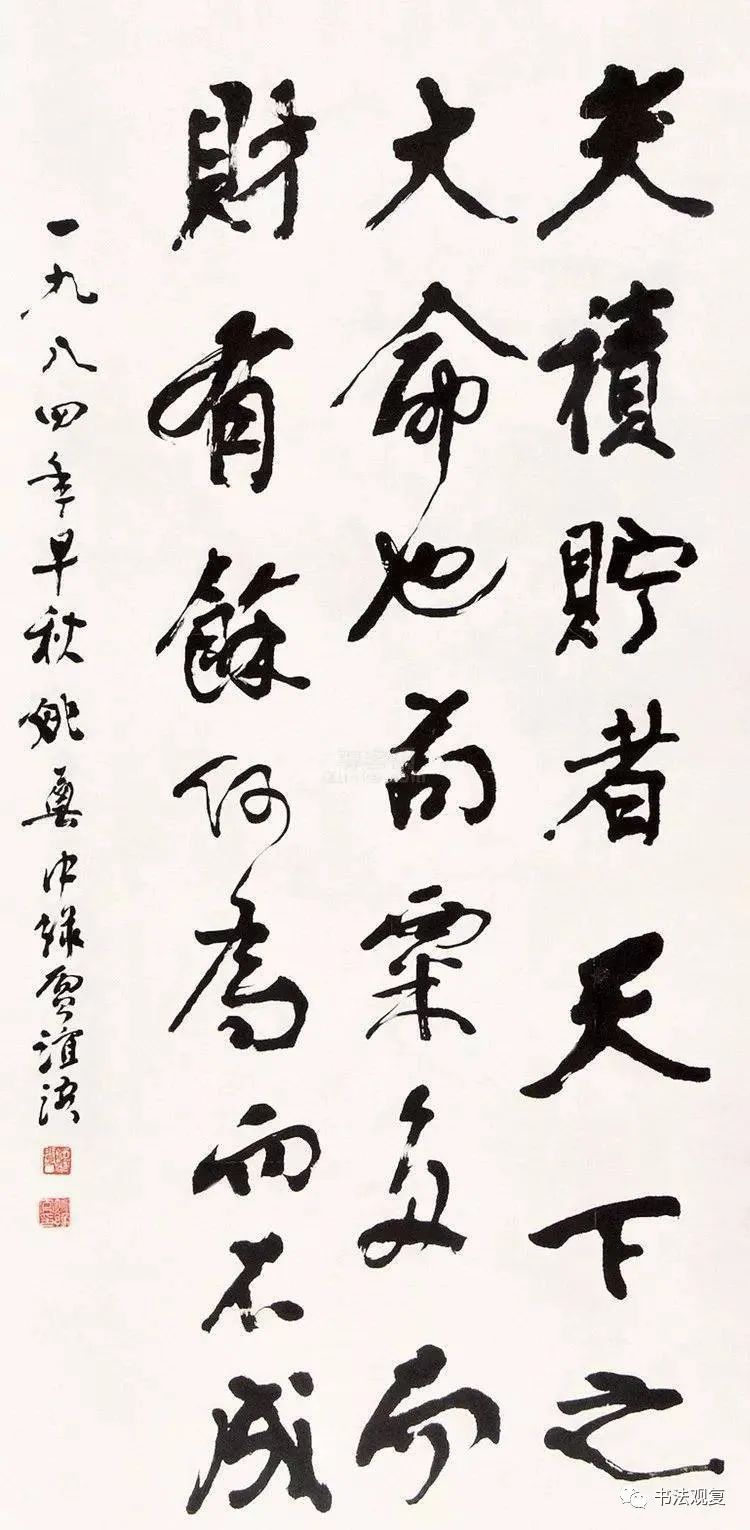 夫積貯者天下之
大命也苟粟多而
財有餘何為而不成
一九八四年早秋姚奠中録賈誼語
书法观复